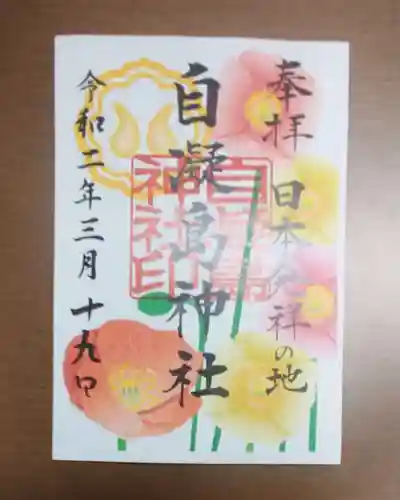 奉拝
日本発祥の地
自凝島神社
令和二年三月十九日
自凝島神社印